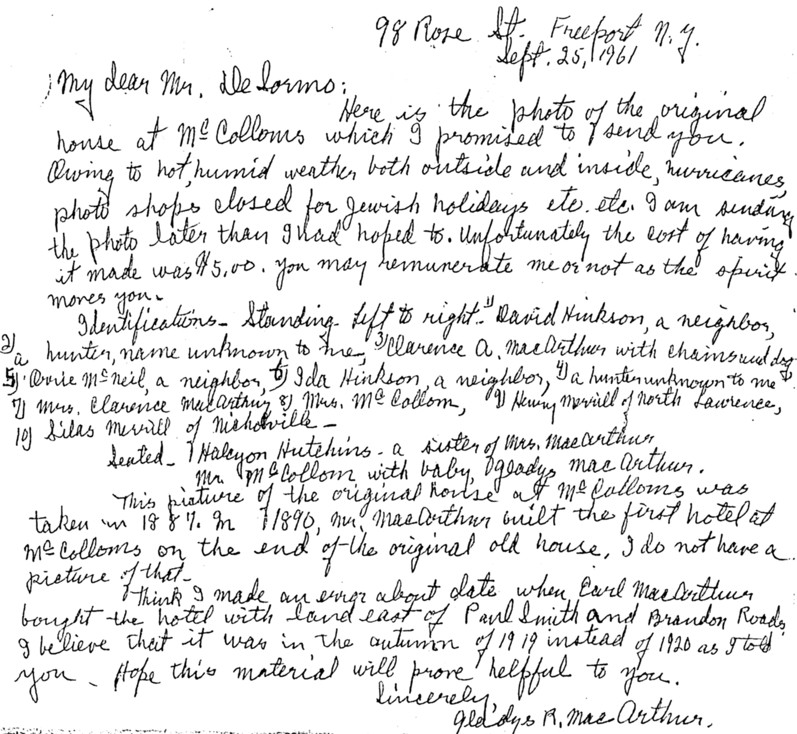 98 Rose St. Freeport N.Y.
Sept. 25, 1961
My dear Mr. De Sormo:
Here is the photo of the original
house at McColloms which I promised to send you.
Owing to hot, humid weather both outside and inside, hurricanes,
photo shops closed for Jewish holidays etc. etc. I am sending
the photo later than I had hoped to. Unfortunately the cost of having
it made was $5.00. You may remunerate me or not as the spirit
moves you.
Identifications - Standing - Left to right - 1) David Hinkson, a neighbor,
2) a hunter, name unknown to me, 3) Clarence A. MacArthur with chains and dog
5) Orrie McNeil, a neighbor, 6) Ida Hinkson, a neighbor, 4) a hunter unknown to me
7) Mrs. Clarence MacArthur 8) Mrs. McCollom, 9) Henry Merrill of North Lawrence,
10) Silas Merrill of Nicholville -
Seated - Halcyon Hutchins - a sister of Mrs. MacArthur
Mr. McCollom with baby, Gladys MacArthur.
This picture of the original house at McColloms was
taken in 1887. In 1890, Mr. MacArthur built the first hotel at
McColloms on the end of the original old house. I do not have a
picture of that -
Think I made an error about date when Earl MacArthur
bought the hotel with land east of Paul Smith and Brandon Roads
I believe that it was in the autumn of 1919 instead of 1920 as I told
you - Hope this material will prove helpful to you.
Sincerely,
Gladys R. MacArthur.